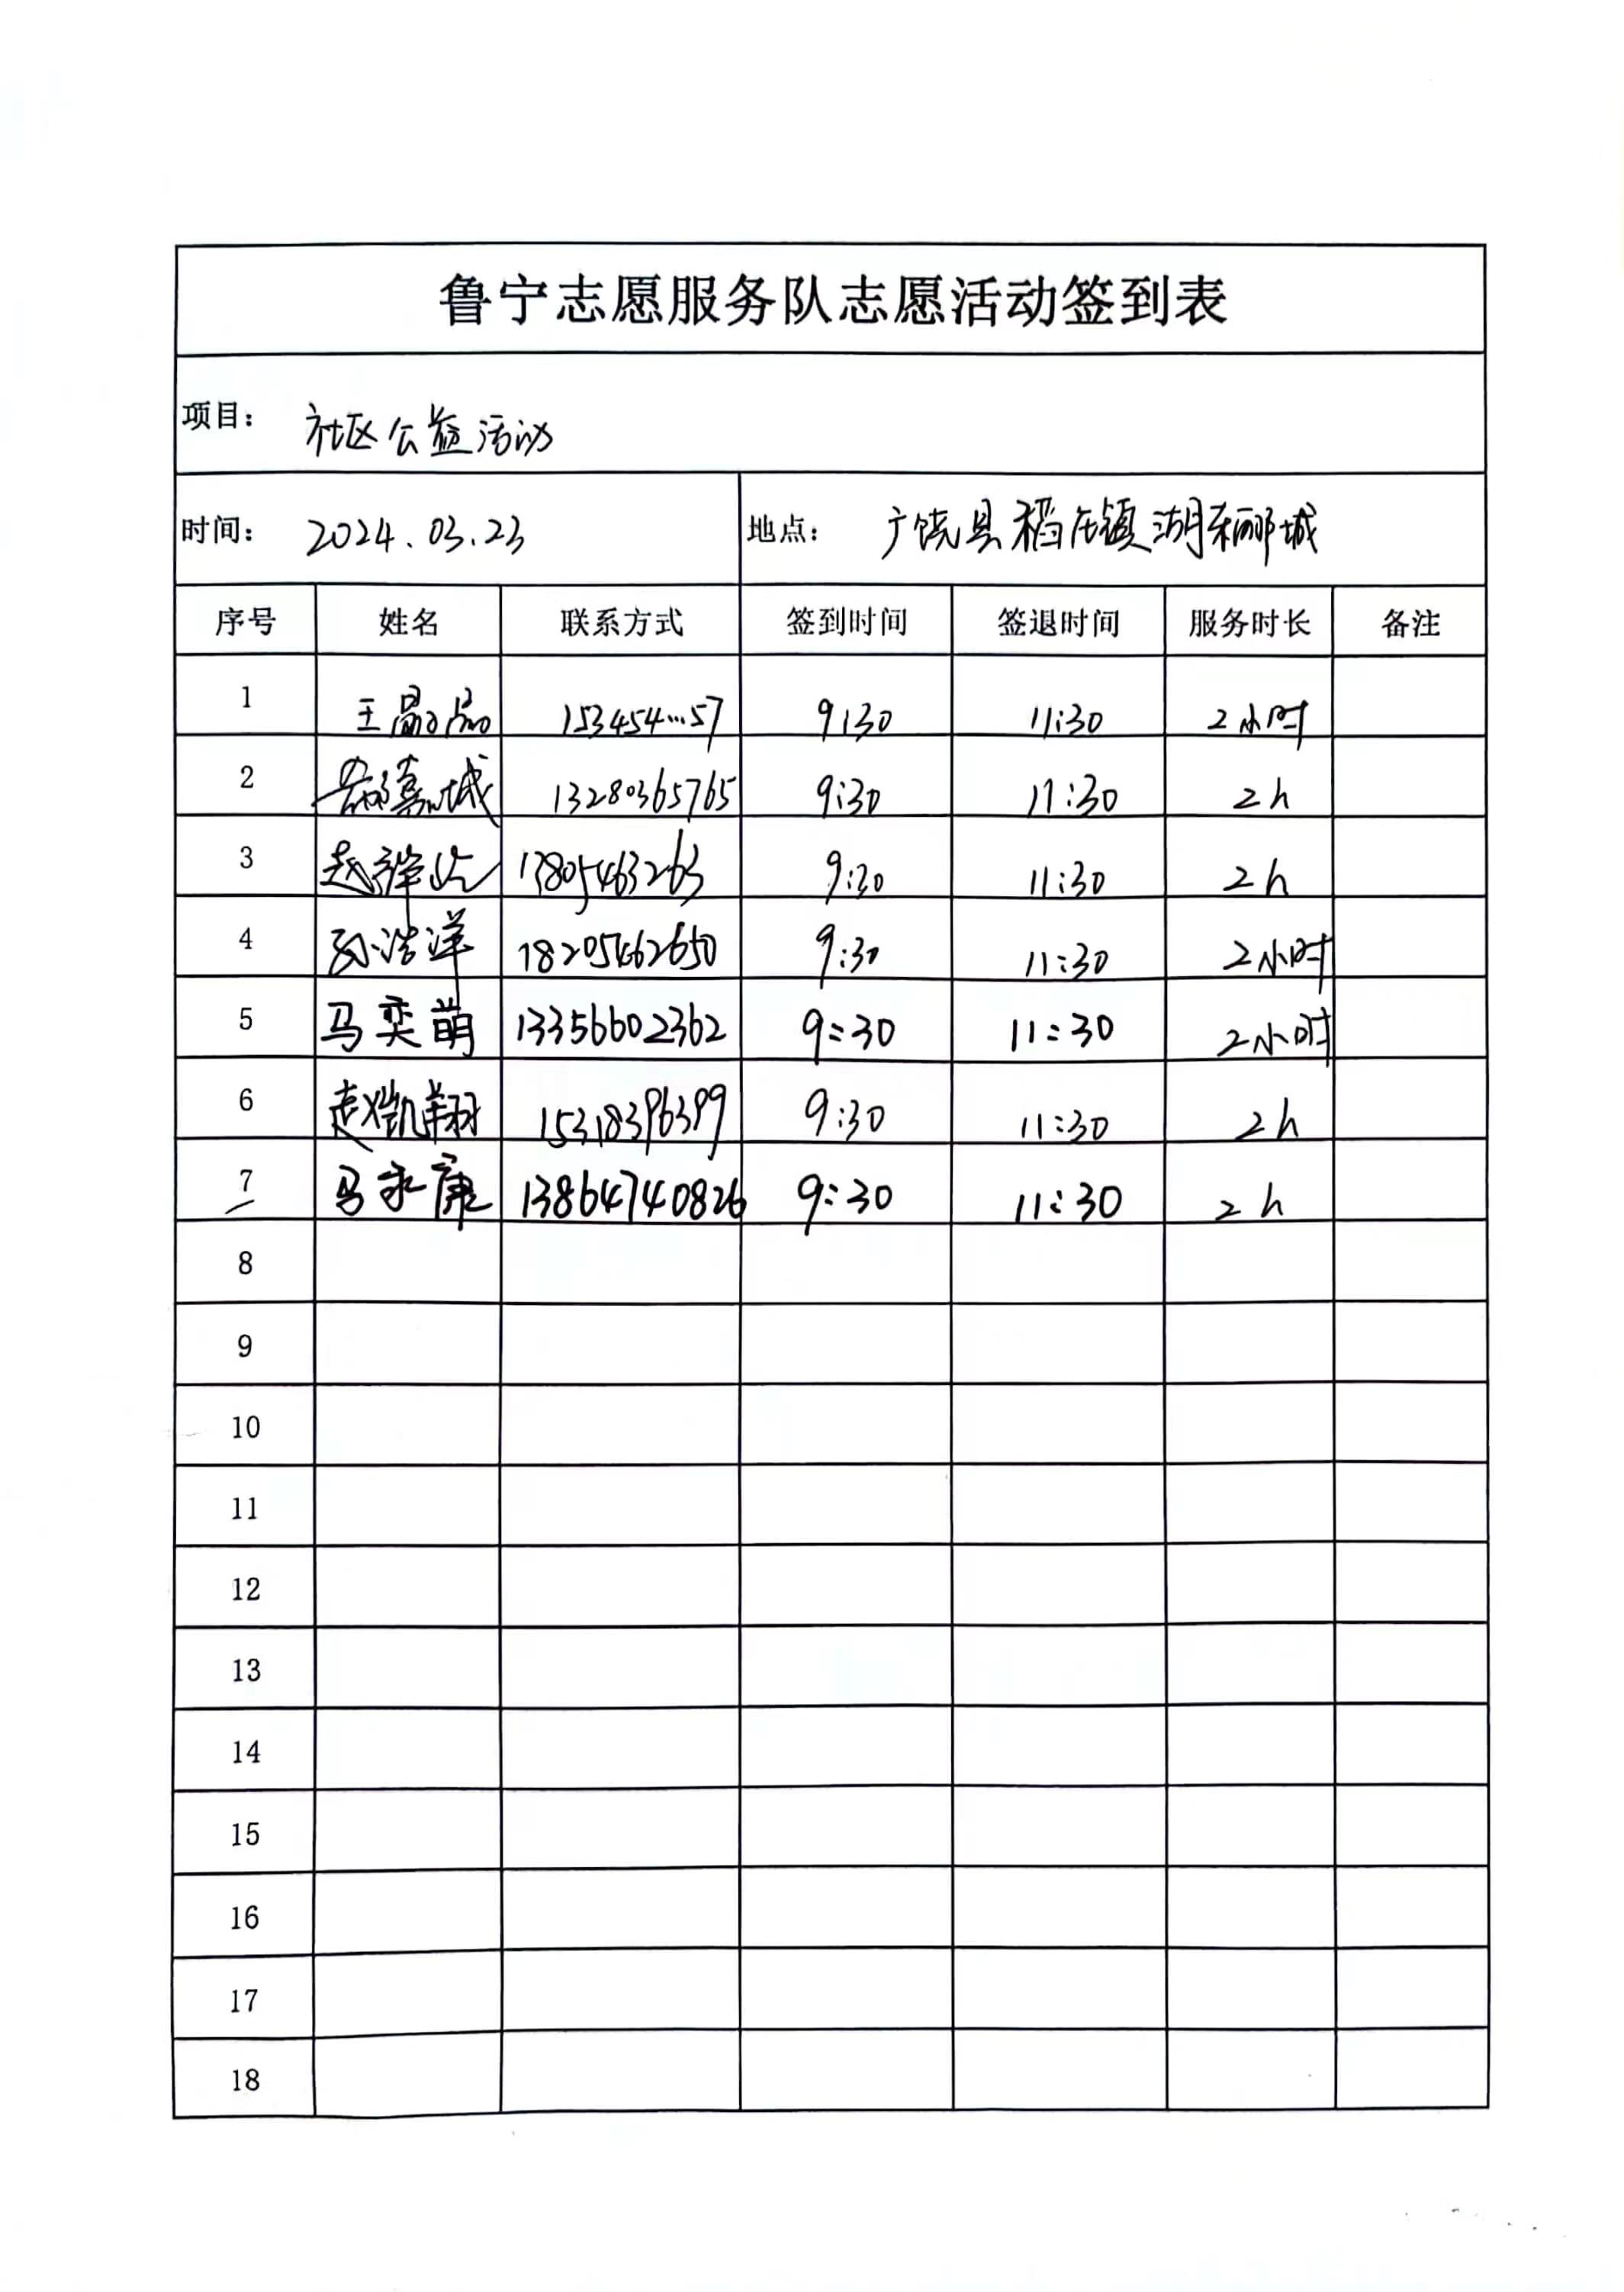 鲁宁志愿服务队志愿活动签到表
项目： 社区公益活动
时间： 2024.03.23 地点： 广饶县稻庄镇湖郦城
序号 姓名 联系方式 签到时间 签退时间 服务时长 备注
1 王晶晶 153454...57 9:30 11:30 2小时
2 嘉城 13280365765 9:30 11:30 2h
3 赵 13805463263 9:30 11:30 2h
4 孙浩洋 18205462650 9:30 11:30 2小时
5 马奕萌 13356602362 9:30 11:30 2小时
6 赵凯翔 15318396399 9:30 11:30 2h
7 马永康 13864740826 9:30 11:30 2h
8
9
10
11
12
13
14
15
16
17
18